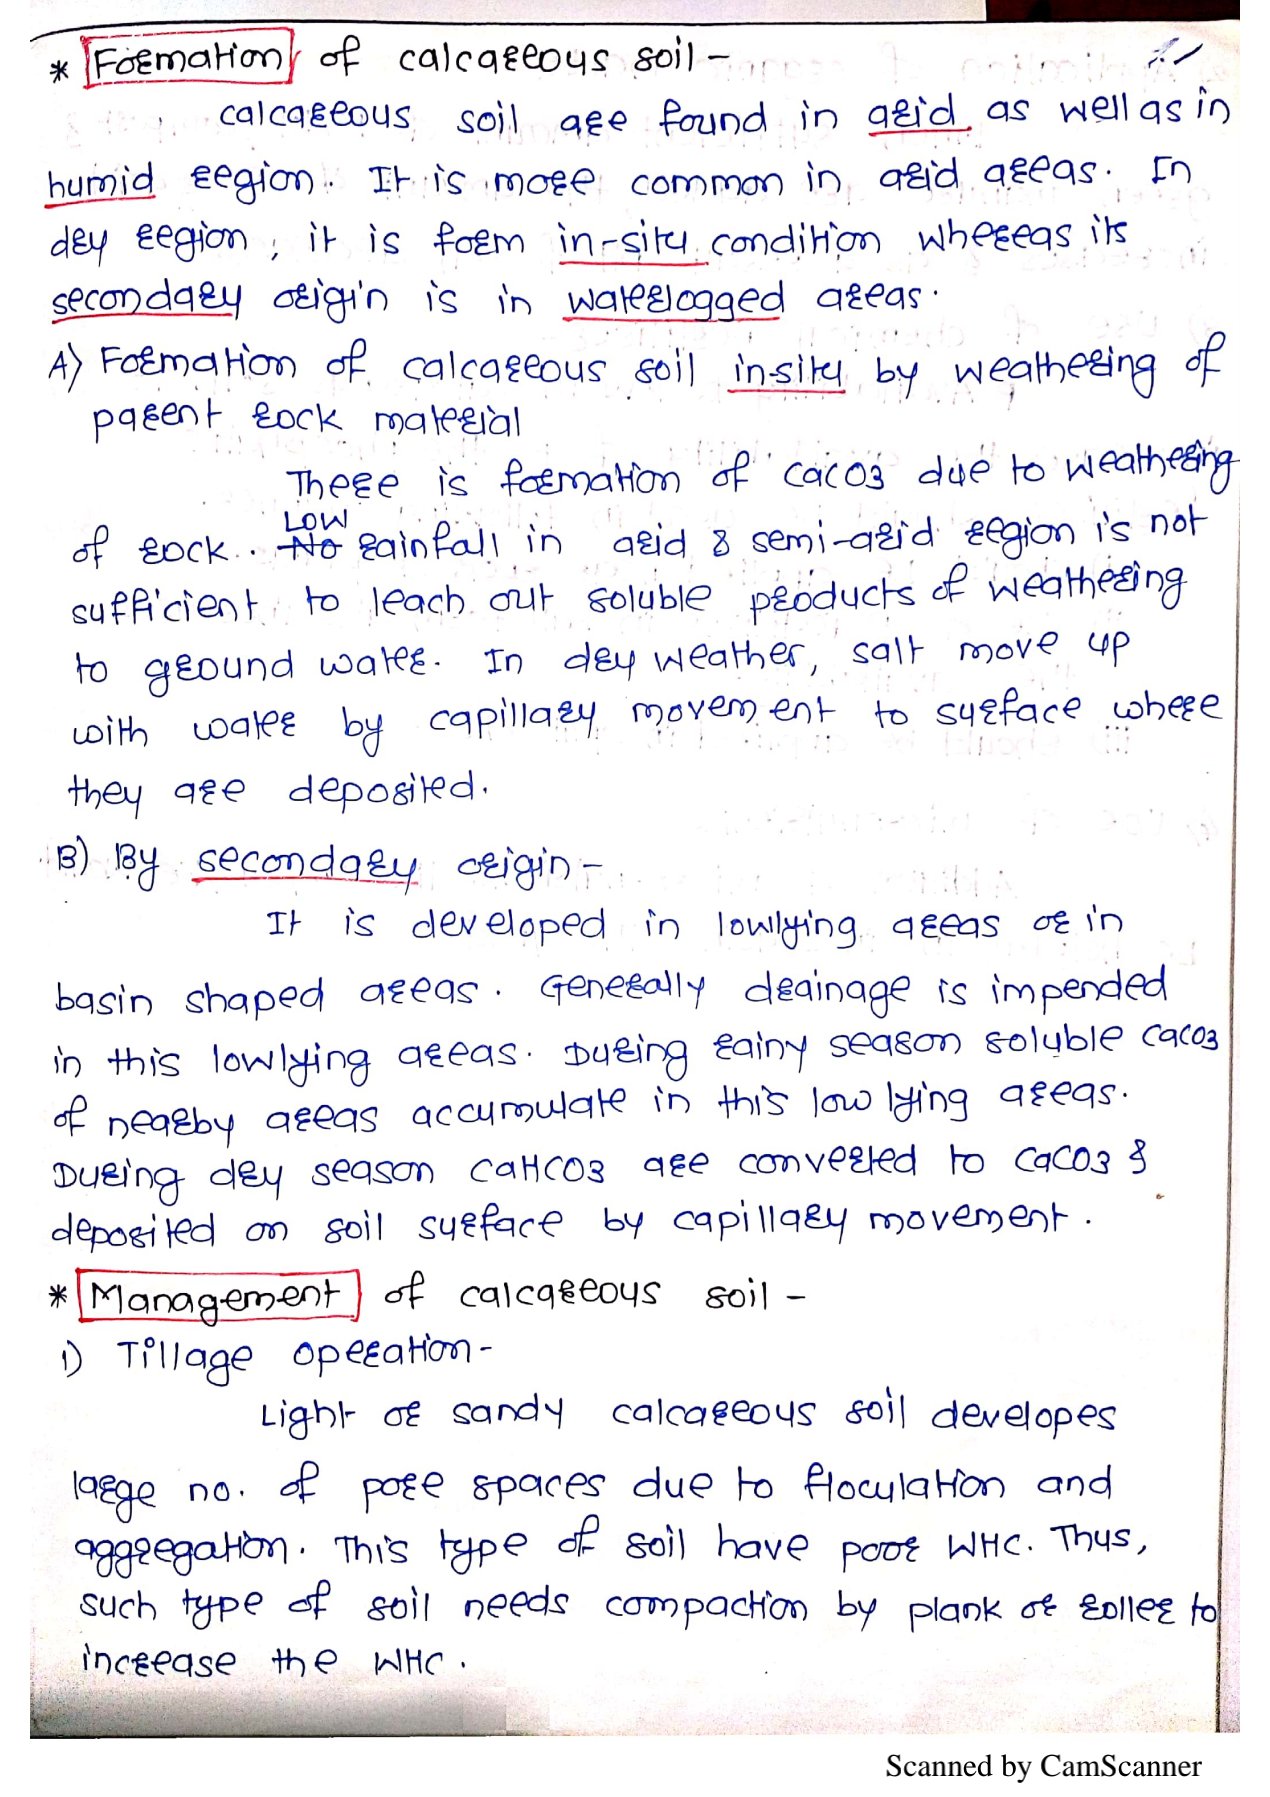 * Formation of calcareous soil -
calcareous soil are found in arid as well as in
humid region. It is more common in arid areas. In
dry region, it is form in-situ condition whereas its
secondary origin is in waterlogged areas.
A) Formation of calcareous soil in-situ by weathering of
parent rock material
There is formation of caco3 due to weathering
LOW
of rock. No rainfall in arid & semi-arid region is not
sufficient to leach out soluble products of weathering
to ground water. In dry weather, salt move up
with water by capillary movement to surface where
they are deposited.
B) By secondary origin -
It is developed in lowlying areas or in
basin shaped areas. Generally drainage is impended
in this lowlying areas. During rainy season soluble caco3
of nearby areas accumulate in this low lying areas.
During dry season CaHCO3 are converted to CaCO3 &
deposited on soil surface by capillary movement.
* Management of calcareous soil -
1) Tillage operation -
Light or sandy calcareous soil developes
large no. of pore spaces due to floculation and
aggregation. This type of soil have poor WHC. Thus,
such type of soil needs compaction by plank or roller to
increase the WHC.
Scanned by CamScanner